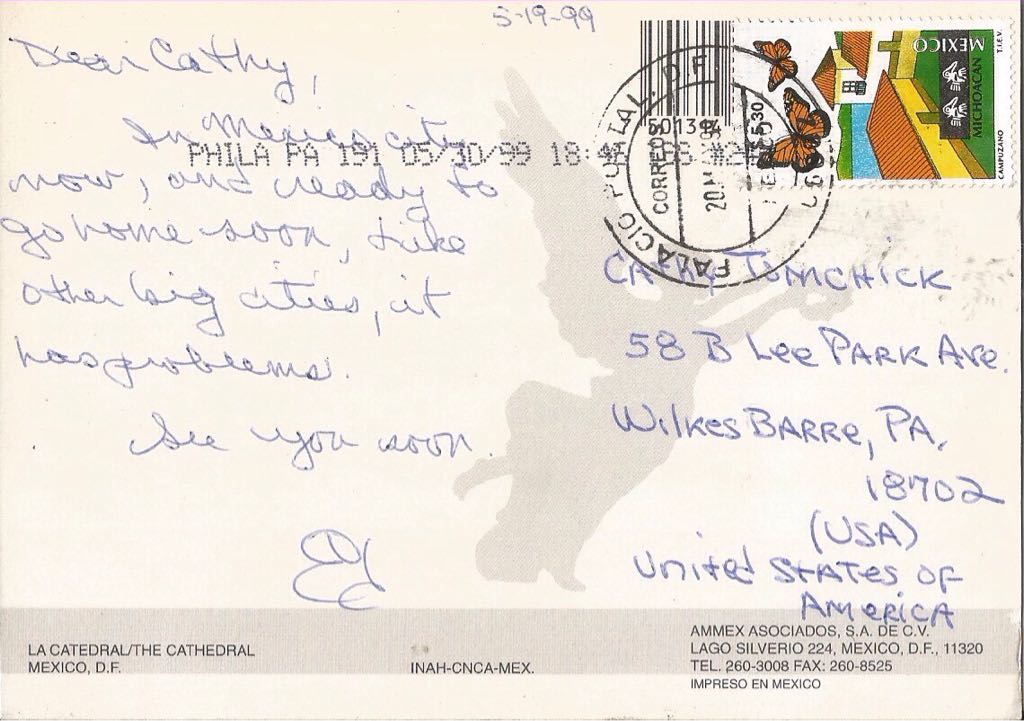 5-19-99
Dear Cathy,
In Mexico city
now, and ready to
go home soon, Like
other big cities, it
has problems.
See you soon.
Ed
PHILA PA 191 05/30/99 18:
MEXICO
MICHOACAN
T.I.E.V.
CAMPUZANO
5.30
CORREOS
D.F.
CATHY TOMCHICK
58 B Lee PARK Ave.
WilkesBARRe, PA.
18702
(USA)
United STATES OF
AMERICA
LA CATEDRAL/THE CATHEDRAL
MEXICO, D.F.
INAH-CNCA-MEX.
AMMEX ASOCIADOS, S.A. DE C.V.
LAGO SILVERIO 224, MEXICO, D.F., 11320
TEL. 260-3008 FAX: 260-8525
IMPRESO EN MEXICO